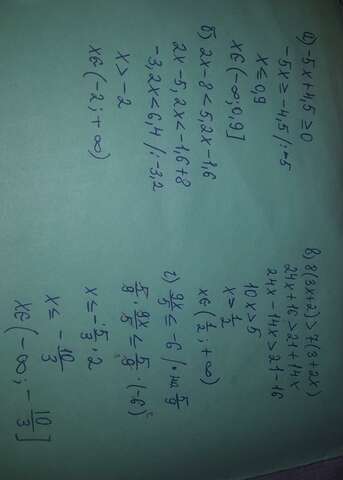 а) -5x+4,5≥0
-5x≥-4,5/:-5
x≤0,9
x∈(-∞;0,9]
б) 2x-8<5,2x-1,6
2x-5,2x<-1,6+8
-3,2x<6,4/:-3,2
x>-2
x∈(-2;+∞)
в) 8(3x+2)>7(3+2x)
24x+16>21+14x
24x-14x>21-16
10x>5
x>1/2
x∈(1/2;+∞)
г) 9x/5≤-6/·на 5/9
5/9·9x/5≤5/9·(-6)
x≤-5/3·2
x≤-10/3
x∈(-∞;-10/3]